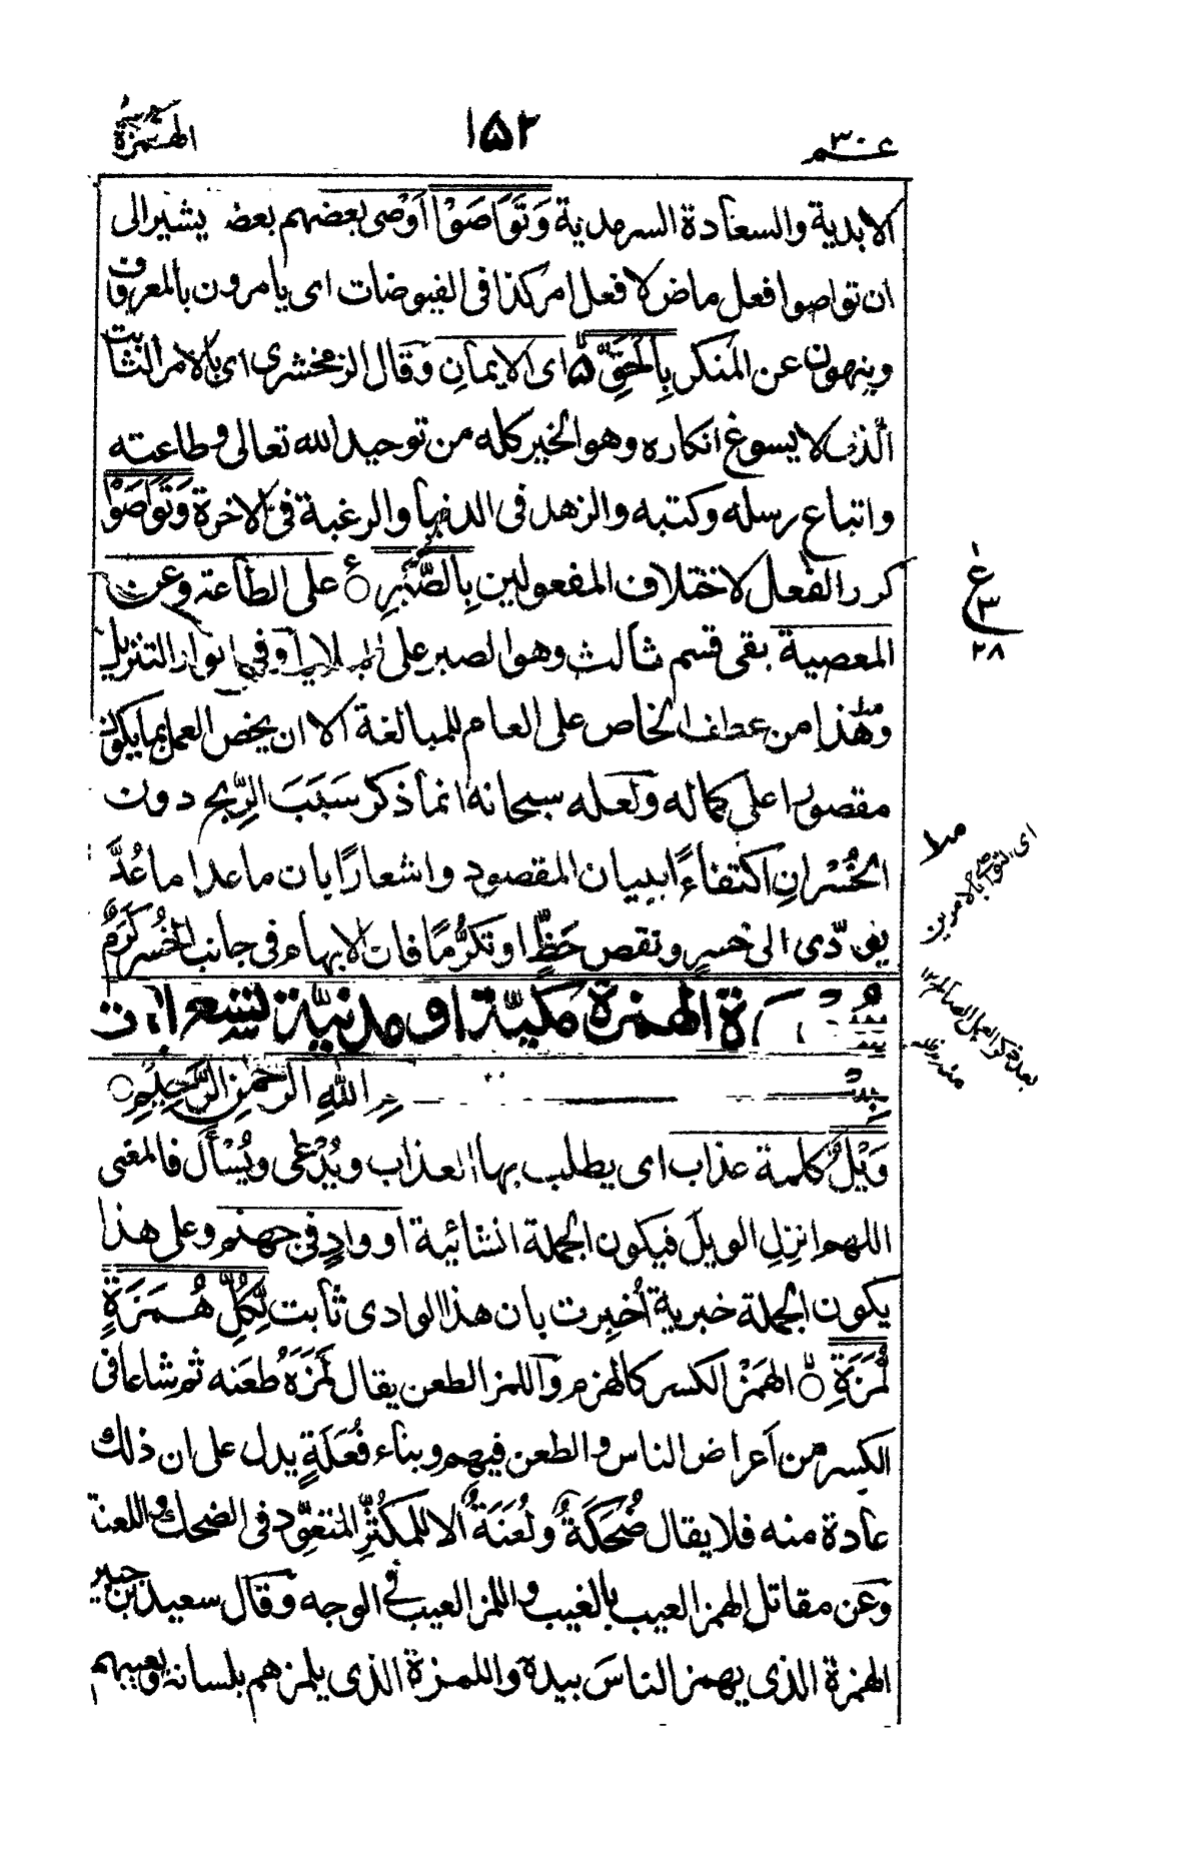 عــم ٣٠
١٥٢
الهمزة
الابدية والسعادة السرمدية وَتَوَاصَوْا اَوْصى بعضهم بعضا يشير الى
ان تواصوا فعل ماض لا فعل امر كذا فى الفيوضات اى يامرون بالمعروف
وينهون عن المنكر بِالْحَقِّ ۵ اى الايمان وقال الزمخشرى اى بالامر الثابت
الذى لا يسوغ انكاره وهو الخير كله من توحيد الله تعالى وطاعته
واتباع رسله وكتبه والزهد فى الدنيا والرغبة فى الاخرة وَتَوَاصَوْا
كرر الفعل لاختلاف المفعولين بِالصَّبْرِ ○ على الطاعة وعن
المعصية بقى قسم ثالث وهو الصبر على البلايا وفى انوار التنزيل
وهذا من عطف الخاص على العام للمبالغة الا ان يخص العمل بما يكون
مقصورا على كماله ولعله سبحانه انما ذكر سَبَبَ الرِّبح دون
الخُسْرانِ اكتفاءً ببيان المقصود واشعارًا بان ما عدا ما عُدَّ
يؤدّى الى خسرٍ ونقص حَظٍّ او تكرُّمًا فان الابهام فى جانب الخُسر كَرَمٌ
سُورَة الهمزة مكيّة او مدنيّة تسع اٰيات
بِسْمِ اللهِ الرَّحْمٰنِ الرَّحِيْمِ ○
وَيْلٌ كلمة عذاب اى يطلب بها العذاب ويُدْعٰى ويُسْأل فالمعنى
اللهم انزِلِ الويلَ فيكون الجملة انشائية او وادٍ فى جهنم وعلى هذا
يكون الجملة خبرية اُخبِرت بان هذا الوادى ثابت لِّكُلِّ هُمَزَةٍ
لُّمَزَةِ ○ الهَمْزُ الكسر كالهزم واللمز الطعن يقال لَمَزَه طَعَنه ثم شاعا فى
الكسر من اَعراض الناس والطعن فيهم وبناء فُعَلَةٍ يدل على ان ذلك
عادة منه فلا يقال ضُحَكَةٌ ولُعَنَةٌ الا للمكثِرِ المتعوِّد فى الضحك واللعنة
وعن مقاتل الهمز العيب بالغيب واللمز العيب فى الوجه وقال سعيد بن جبير
الهمزة الذى يهمز الناسَ بيده واللمزة الذى يلمزهم بلسانه ويعيبهم
ع
٣
٢٨
اى التواصى بالامرين
بعد ذكر العمل الصالح ١٢
منه